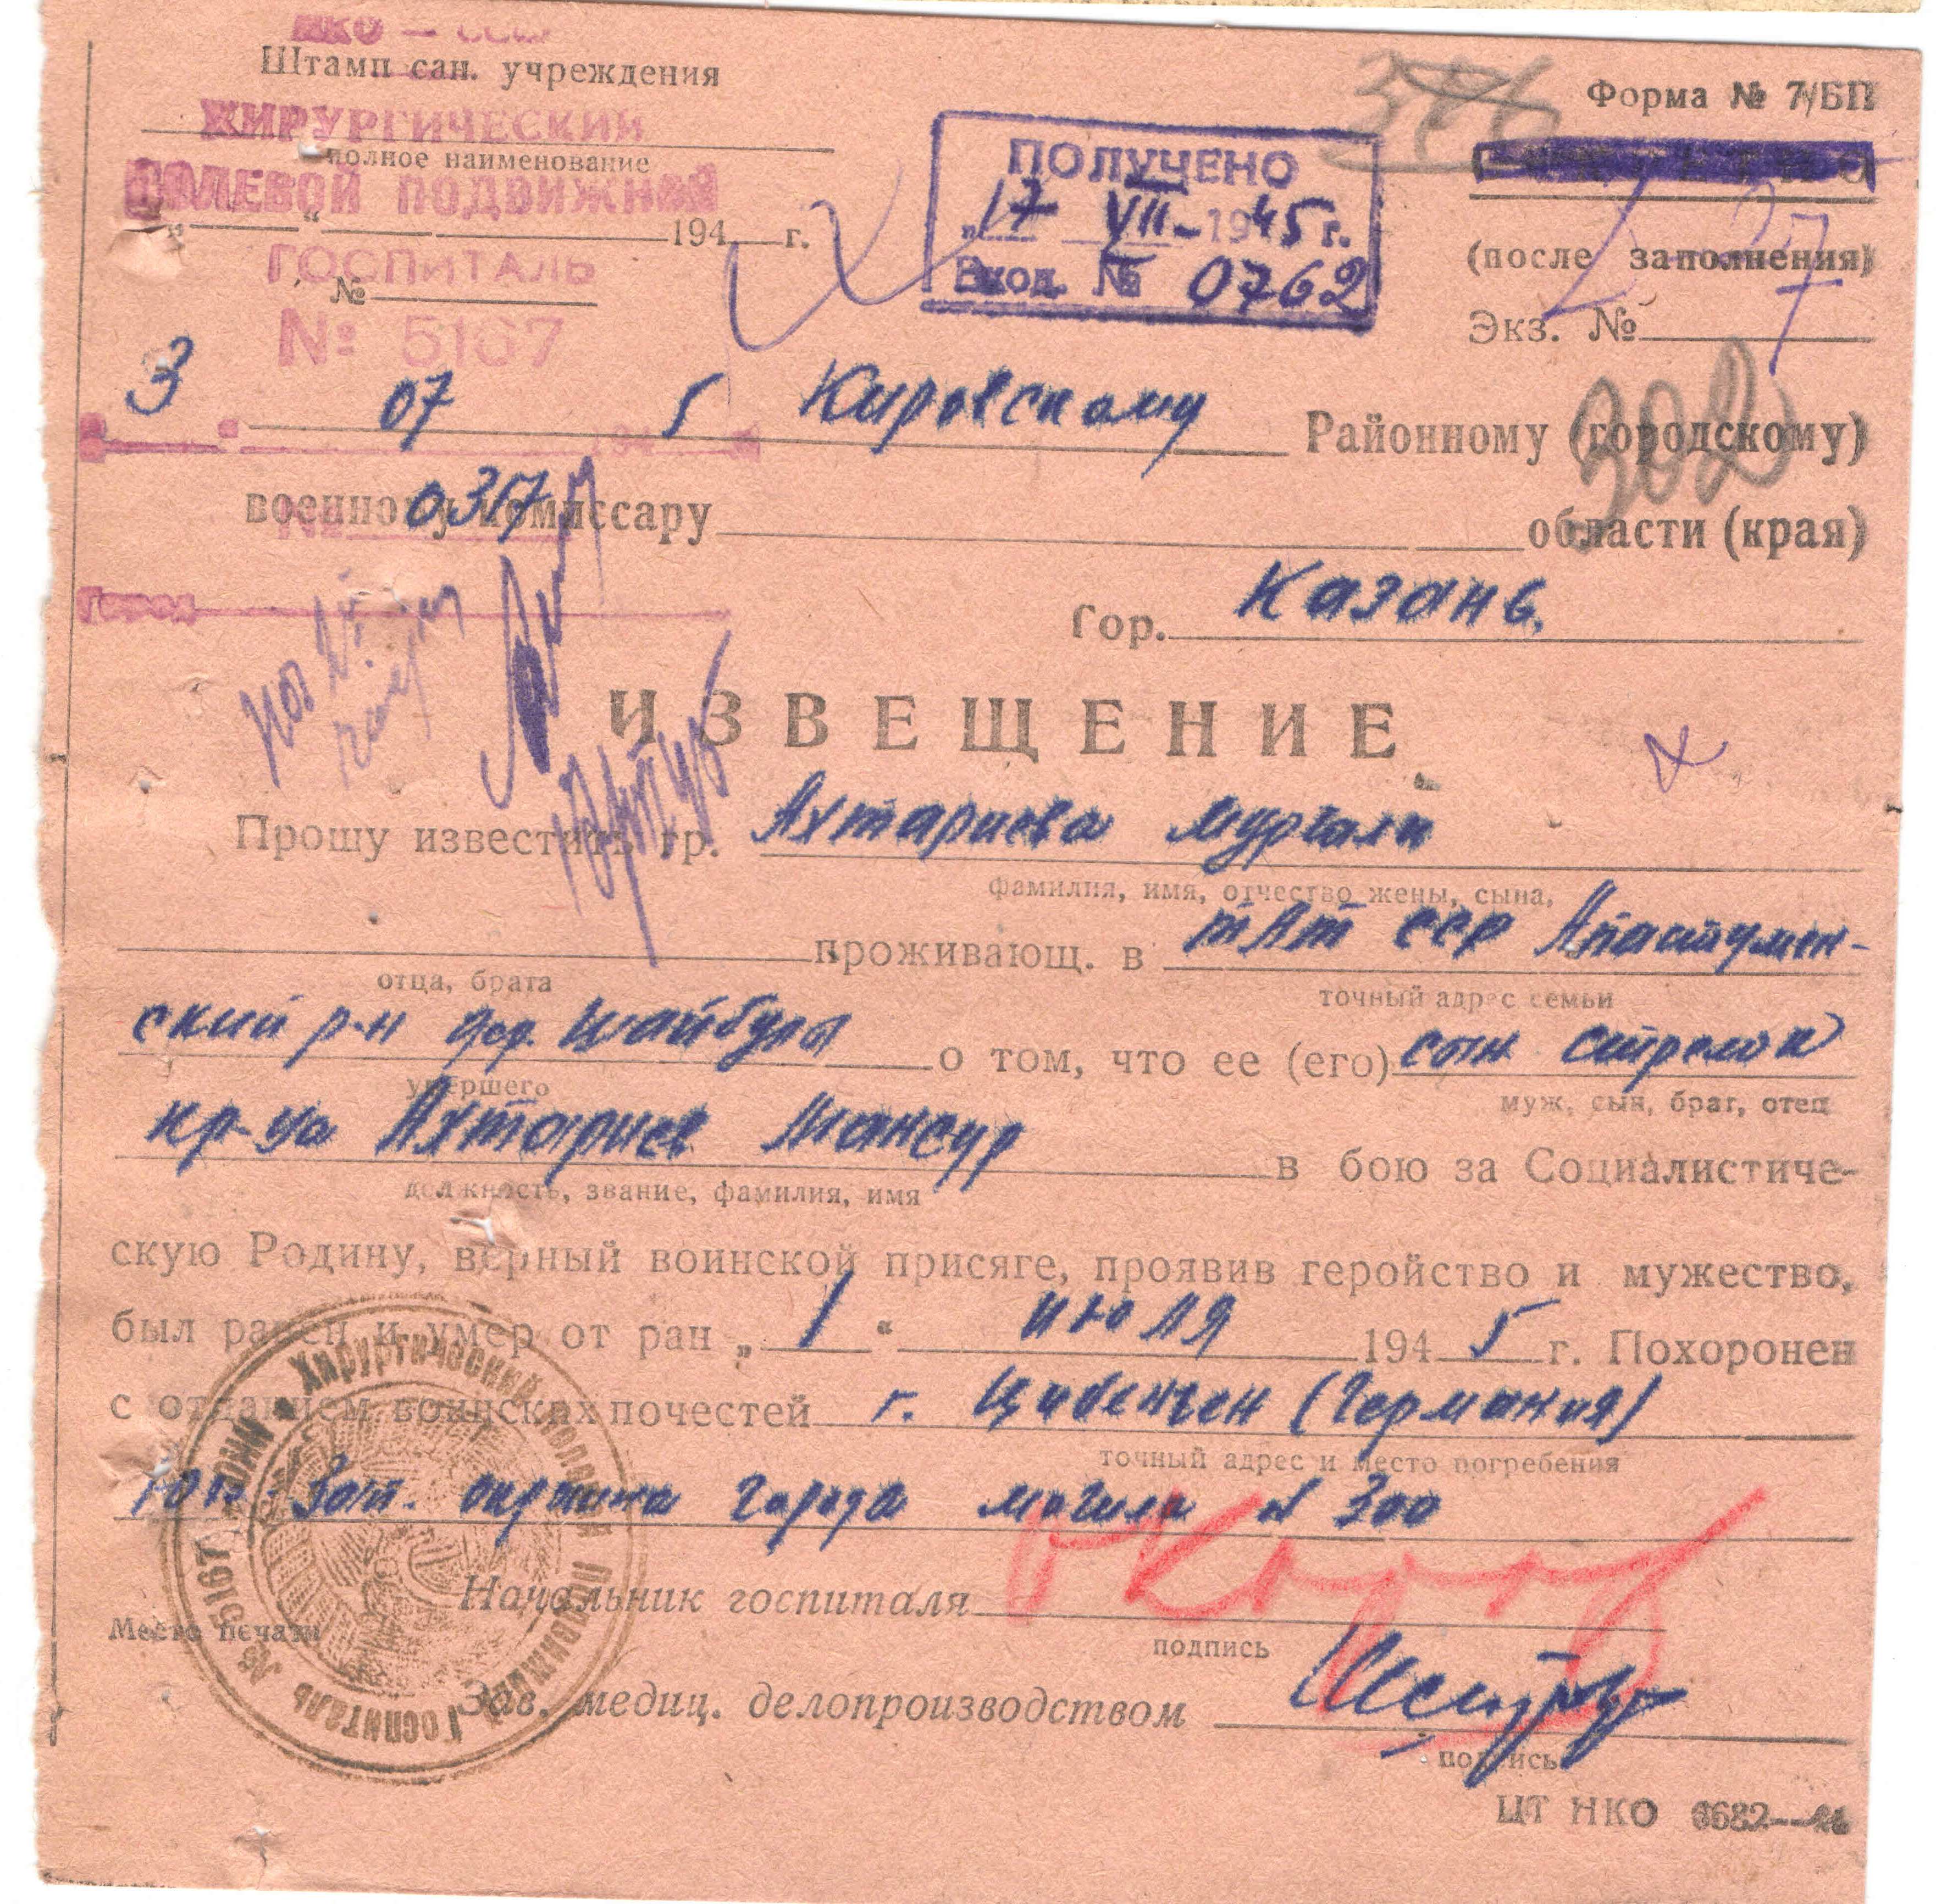 НКО — СССР
Штамп сан. учреждения
ХИРУРГИЧЕСКИЙ
полное наименование
ПОЛЕВОЙ ПОДВИЖНОЙ
„ “ 194 г.
ГОСПИТАЛЬ
№
№ 5167
ПОЛУЧЕНО
„17 VII 1945 г.
Вход. № 0762
Форма № 7/БП
(после заполнения)
Экз. №
302
3 07 5 Кировскому Районному (городскому)
военному комиссару области (края)
№ 0317
Город
Гор. Казань.
ИЗВЕЩЕНИЕ
Прошу известить гр. Ахтариева Муртали
фамилия, имя, отчество жены, сына,
проживающ. в тАт ССР Апастумен-
отца, брата
точный адрес семьи
ский р-н дер. Шайбула о том, что ее (его) сын стрелок
умершего
муж, сын, брат, отец
кр-ца Ахтариев Мансур в бою за Социалистиче-
должность, звание, фамилия, имя
скую Родину, верный воинской присяге, проявив геройство и мужество,
был ранен и умер от ран „ 1 “ июля 1945 г. Похоронен
с отданием воинских почестей г. Цибенген (Германия)
точный адрес и место погребения
юго-Зап. окраина города могила № 300
Начальник госпиталя
Место печати
подпись
Зав. медиц. делопроизводством
подпись
Хирургический Полевой Подвижной Госпиталь № 5167
ЦТ НКО 0682—